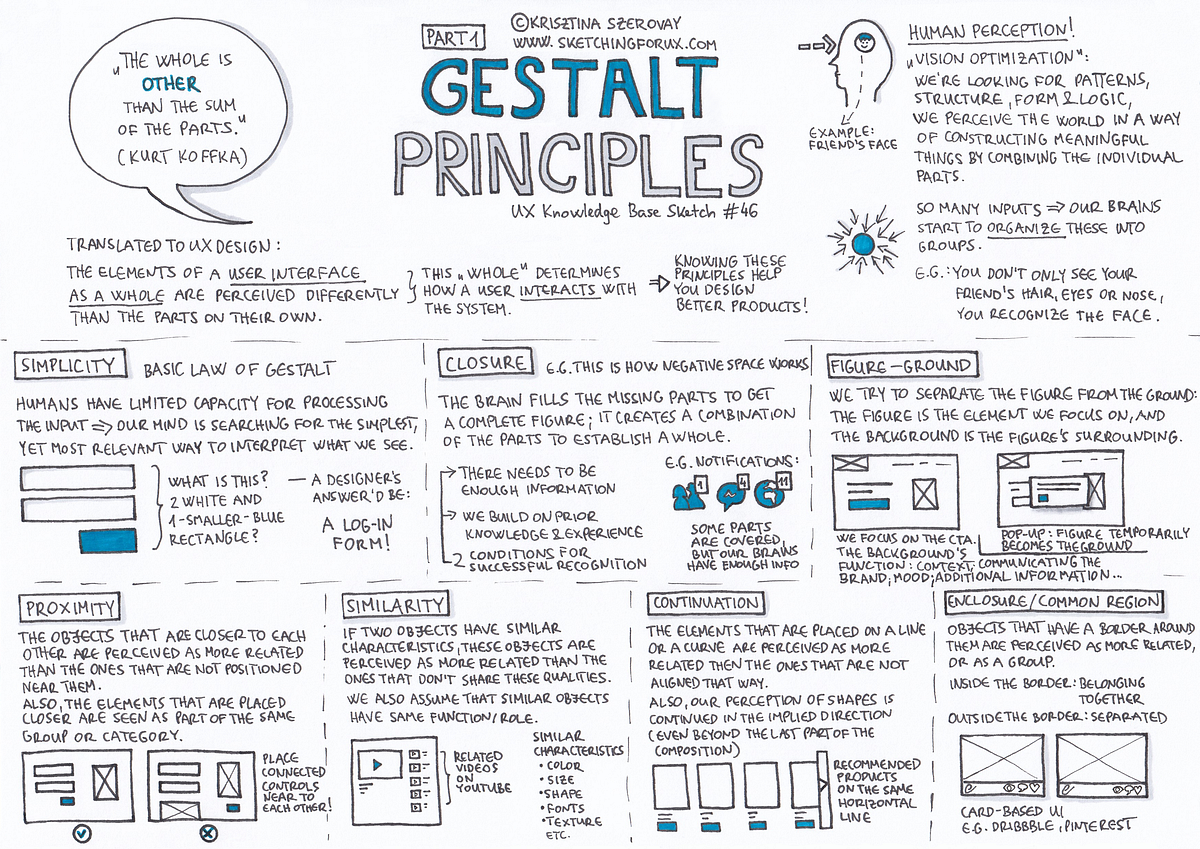 „THE WHOLE IS
OTHER
THAN THE SUM
OF THE PARTS."
(KURT KOFFKA)
PART 1
©KRISZTINA SZEROVAY
WWW.SKETCHINGFORUX.COM
GESTALT
PRINCIPLES
UX Knowledge Base Sketch #46
EXAMPLE:
FRIEND'S FACE
HUMAN PERCEPTION!
„VISION OPTIMIZATION":
WE'RE LOOKING FOR PATTERNS,
STRUCTURE, FORM & LOGIC,
WE PERCEIVE THE WORLD IN A WAY
OF CONSTRUCTING MEANINGFUL
THINGS BY COMBINING THE INDIVIDUAL
PARTS.
SO MANY INPUTS ⇒ OUR BRAINS
START TO ORGANIZE THESE INTO
GROUPS.
E.G.: YOU DON'T ONLY SEE YOUR
FRIEND'S HAIR, EYES OR NOSE,
YOU RECOGNIZE THE FACE.
TRANSLATED TO UX DESIGN:
THE ELEMENTS OF A USER INTERFACE
AS A WHOLE ARE PERCEIVED DIFFERENTLY
THAN THE PARTS ON THEIR OWN.
THIS „WHOLE" DETERMINES
HOW A USER INTERACTS WITH
THE SYSTEM.
⇒ KNOWING THESE
PRINCIPLES HELP
YOU DESIGN
BETTER PRODUCTS!
SIMPLICITY BASIC LAW OF GESTALT
HUMANS HAVE LIMITED CAPACITY FOR PROCESSING
THE INPUT ⇒ OUR MIND IS SEARCHING FOR THE SIMPLEST,
YET MOST RELEVANT WAY TO INTERPRET WHAT WE SEE.
WHAT IS THIS?
2 WHITE AND
1-SMALLER-BLUE
RECTANGLE?
— A DESIGNER'S
ANSWER'D BE:
A LOG-IN
FORM!
CLOSURE E.G. THIS IS HOW NEGATIVE SPACE WORKS
THE BRAIN FILLS THE MISSING PARTS TO GET
A COMPLETE FIGURE; IT CREATES A COMBINATION
OF THE PARTS TO ESTABLISH A WHOLE.
THERE NEEDS TO BE
ENOUGH INFORMATION
WE BUILD ON PRIOR
KNOWLEDGE & EXPERIENCE
2 CONDITIONS FOR
SUCCESSFUL RECOGNITION
E.G. NOTIFICATIONS:
1 4 11
SOME PARTS
ARE COVERED,
BUT OUR BRAINS
HAVE ENOUGH INFO
FIGURE-GROUND
WE TRY TO SEPARATE THE FIGURE FROM THE GROUND:
THE FIGURE IS THE ELEMENT WE FOCUS ON, AND
THE BACKGROUND IS THE FIGURE'S SURROUNDING.
WE FOCUS ON THE CTA.
THE BACKGROUND'S
FUNCTION: CONTEXT, COMMUNICATING THE
BRAND, MOOD, ADDITIONAL INFORMATION...
POP-UP: FIGURE TEMPORARILY
BECOMES THE GROUND
PROXIMITY
THE OBJECTS THAT ARE CLOSER TO EACH
OTHER ARE PERCEIVED AS MORE RELATED
THAN THE ONES THAT ARE NOT POSITIONED
NEAR THEM.
ALSO, THE ELEMENTS THAT ARE PLACED
CLOSER ARE SEEN AS PART OF THE SAME
GROUP OR CATEGORY.
PLACE
CONNECTED
CONTROLS
NEAR TO
EACH OTHER!
SIMILARITY
IF TWO OBJECTS HAVE SIMILAR
CHARACTERISTICS, THESE OBJECTS ARE
PERCEIVED AS MORE RELATED THAN THE
ONES THAT DON'T SHARE THESE QUALITIES.
WE ALSO ASSUME THAT SIMILAR OBJECTS
HAVE SAME FUNCTION/ROLE.
RELATED
VIDEOS
ON
YOUTUBE
SIMILAR
CHARACTERISTICS
• COLOR
• SIZE
• SHAPE
• FONTS
• TEXTURE
ETC.
CONTINUATION
THE ELEMENTS THAT ARE PLACED ON A LINE
OR A CURVE ARE PERCEIVED AS MORE
RELATED THEN THE ONES THAT ARE NOT
ALIGNED THAT WAY.
ALSO, OUR PERCEPTION OF SHAPES IS
CONTINUED IN THE IMPLIED DIRECTION
(EVEN BEYOND THE LAST PART OF THE
COMPOSITION)
RECOMMENDED
PRODUCTS
ON THE SAME
HORIZONTAL
LINE
ENCLOSURE/COMMON REGION
OBJECTS THAT HAVE A BORDER AROUND
THEM ARE PERCEIVED AS MORE RELATED,
OR AS A GROUP.
INSIDE THE BORDER: BELONGING
TOGETHER
OUTSIDE THE BORDER: SEPARATED
CARD-BASED UI
E.G. DRIBBBLE, PINTEREST